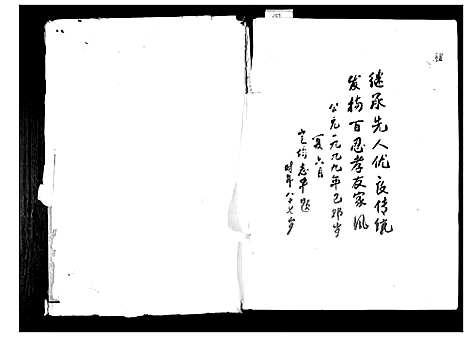 继承先人优良传统
发扬百忍孝友家风
公元一九九九年己卯岁
夏六月
志平题
时年八十七岁